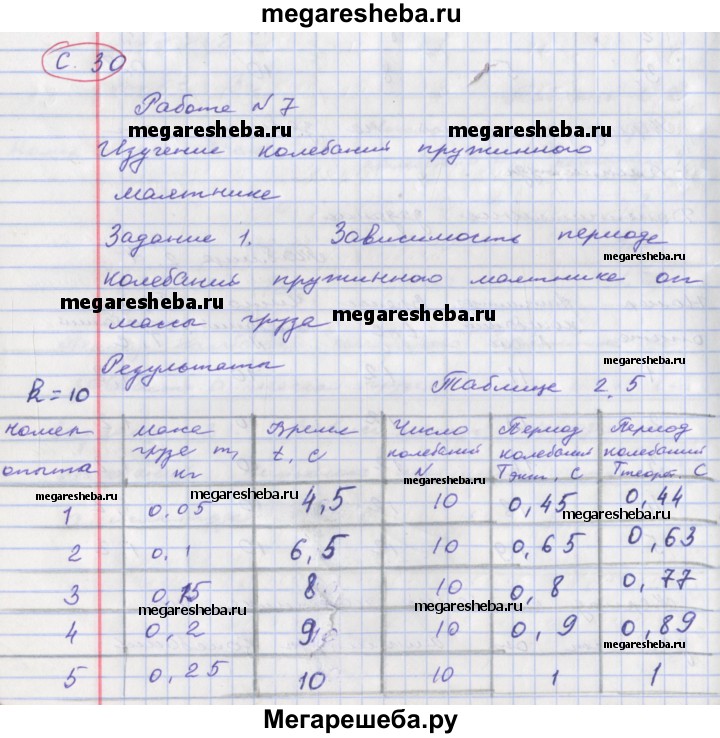 megaresheba.ru
с. 30
Работа N 7
megaresheba.ru megaresheba.ru
Изучение колебаний пружинного
маятника
Задание 1. Зависимость периода
megaresheba.ru
колебаний пружинного маятника от
megaresheba.ru megaresheba.ru
массы груза
Результаты
megaresheba.ru
k = 10 Таблица 2.5
номер опыта | масса груза m, кг | Время t, с | Число колебаний N | Период колебаний Tэксп, С | Период колебаний Tтеорет, С
megaresheba.ru megaresheba.ru megaresheba.ru
1 0,05 4,5 10 0,45 0,44
megaresheba.ru megaresheba.ru
2 0,1 6,5 10 0,65 0,63
3 0,15 8 10 0,8 0,77
megaresheba.ru megaresheba.ru
4 0,2 9 10 0,9 0,89
megaresheba.ru
5 0,25 10 10 1 1
Мегарешеба.ру